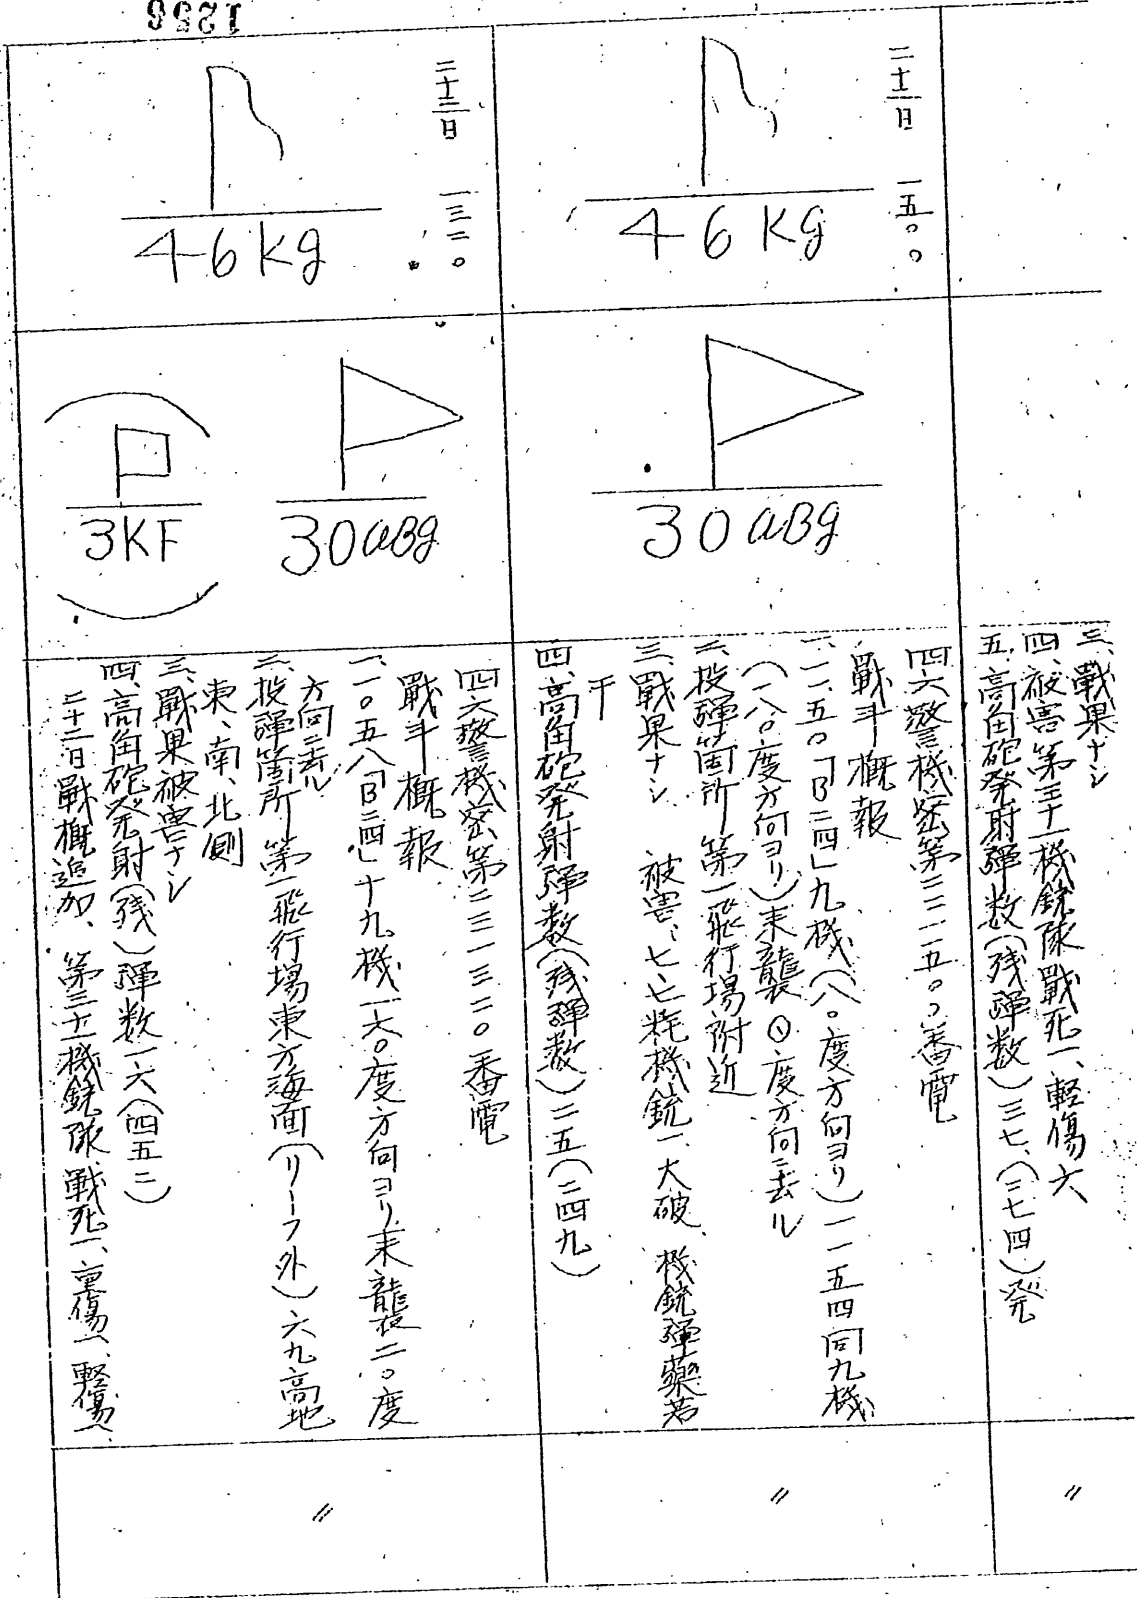 三、戰果ナシ
四、被害 第三十一機銃隊戰死一、軽傷六
五、高角砲発射弾数(残弾数)三七、(二七四)発
二十二日 一五〇〇
46Kg
30aBg
四六警機密第二二一五〇〇番電
戰斗概報
一、一一五〇「B二四」九機(八〇度方向ヨリ)一一五四同九機
(一八〇度方向ヨリ)来襲〇度方向ニ去ル
二、投弾箇所 第一飛行場附近
三、戰果ナシ、被害、七、七粍機銃一、大破、機銃弾薬若
干
四、高角砲発射弾数(残弾数)二五(二四九)
二十三日 一三二〇
46Kg
30aBg
3KF
四六警機密第二三一三二〇番電
戰斗概報
一、一〇五八「B二四」十九機一六〇度方向ヨリ来襲二〇度
方向ニ去ル
二、投弾箇所 第一飛行場東方海面(リーフ外)六九高地
東、南、北側
三、戰果被害ナシ
四、高角砲発射(残)弾数一六(四五二)
二十二日戰概追加、第三十一機銃隊、戰死一、重傷一、軽傷一、
〃
〃
〃
1256